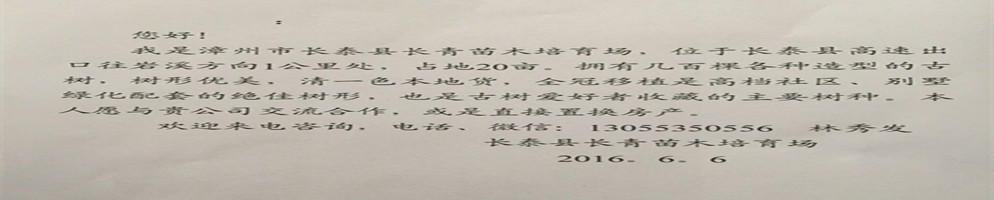 ：
您好！
我是漳州市长泰县长青苗木培育场，位于长泰县高速出
口往岩溪方向1公里处，占地20亩。拥有几百棵各种造型的古
树，树形优美，清一色本地货，全冠移植是高档社区、别墅
绿化配套的绝佳树形，也是古树爱好者收藏的主要树种。本
人愿与贵公司交流合作，或是直接置换房产。
欢迎来电咨询，电话、微信：13055350556 林秀发
长泰县长青苗木培育场
2016．6．6